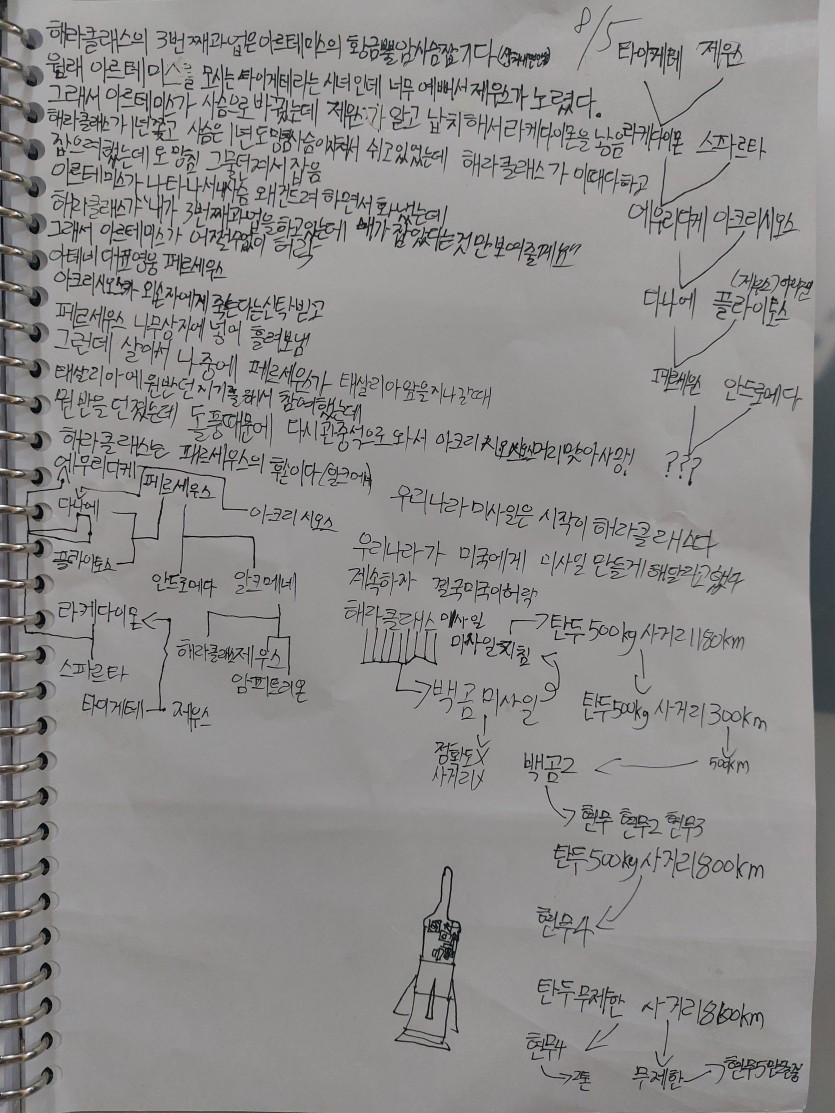 8/5
해라클래스의 3번째과업은아르테미스의 황금뿔암사슴잡기다
원래 아르테미스를 모시는 타이게테라는시녀인데 너무 예뻐서 제우스가 노렸다.
그래서 아르테미스가 사슴으로 바꿨는데 제우스가 알고 납치해서 라케다이몬을 낳음
해라클래스가 1년쫓고 사슴은 1년도망 사슴이지쳐서 쉬고있었는데 해라클래스가 이때다하고
잡으려했는데 도망침 그물던져서 잡음
아르테미스가 나타나서 내사슴 왜건드려 하면서 화냈는데
해라클래스가 "내가 3번째과업을하고있는데 얘가 잡았다는것만보여줄게요"
그래서 아르테미스가 어쩔수없이 허락
아테네 대표영웅 페르세우스
아크리시오스가 외손자에게 죽는다는신탁받고
페르세우스 나무상자에 넣어 흘려보냄
그런데 살아서 나중에 페르세우스가 태살리아앞을지나갈때
태살리아에 원반던지기를해서 참여했는데
원반을 던졌는데 돌풍때문에 다시관중석으로 와서 아크리시오스머리맞아사망!
해라클래스는 페르세우스의 후손이다(알크메네)
타이게테 제우스
라케다이몬 스파르타
에우리디케 아크리시오스
(제우스)
다나에 플라이토스
페르세우스 안드로메다
???
에우리디케
페르세우스
다나에
아크리시오스
플라이토스
안드로메다 알크메네
라케다이몬
해라클래스 제우스
스파르타
암피트리온
타이게테 제우스
우리나라 미사일은 시작이 해라클래스다
우리나라가 미국에게 미사일 만들게 해달라고했다
계속하자 결국미국이허락
해라클래스 미사일
미사일지침
탄두500kg 사거리180km
백곰미사일
탄두500kg 사거리300km
정확도X
사거리X
백곰2
500km
현무 현무2 현무3
탄두500kg사거리800km
현무4
탄두무제한 사거리800km
현무4
2톤
무제한
현무5만드는중